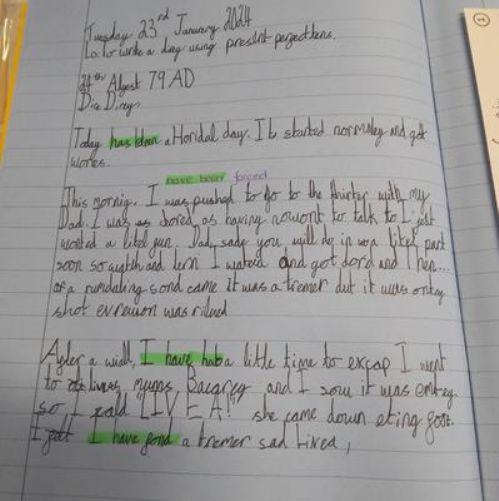 Tuesday 23rd January 2024
Lo: To write a day using present perfect tens.
24th Algest 79 AD
Dia Direy
Today has been a Horidal day. It started normaley and got
wores.
have been forced
This mornig. I was pushed to go to the thirter with my
Dad. I was as bored as having nowont to talk to I just
wonted a litel fun. Dad sade you will be in a litel part
soon so watch and lern I watced and got bord and then...
of a rumdaling sond came it was a tremer but it was onley
shot
After a wiall, I have had a little time to excap I went
to mums and I sow it was emtey
so I "LIVEA!" she came down eting
I have fond a tremer sad Livea,